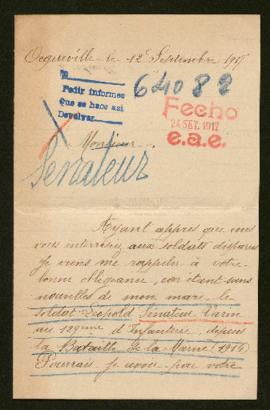 Ocqueville le 12 Septembre 1917
64082
Pedir informes
que se hace asi
Devolver
Fecho
24 SET. 1917
e.a.e.
Monsieur
Senateur
Ayant appres que vous
vous interessez aux soldats disparus
Je viens me rappeler à votre
bonne obligeance, car étant sans
nouvelles de mon mari le
soldat Léopold Senateur
au 129me d'Infanterie depuis
la Bataille de la Marne (1914)
Pourrais je avoir par votre